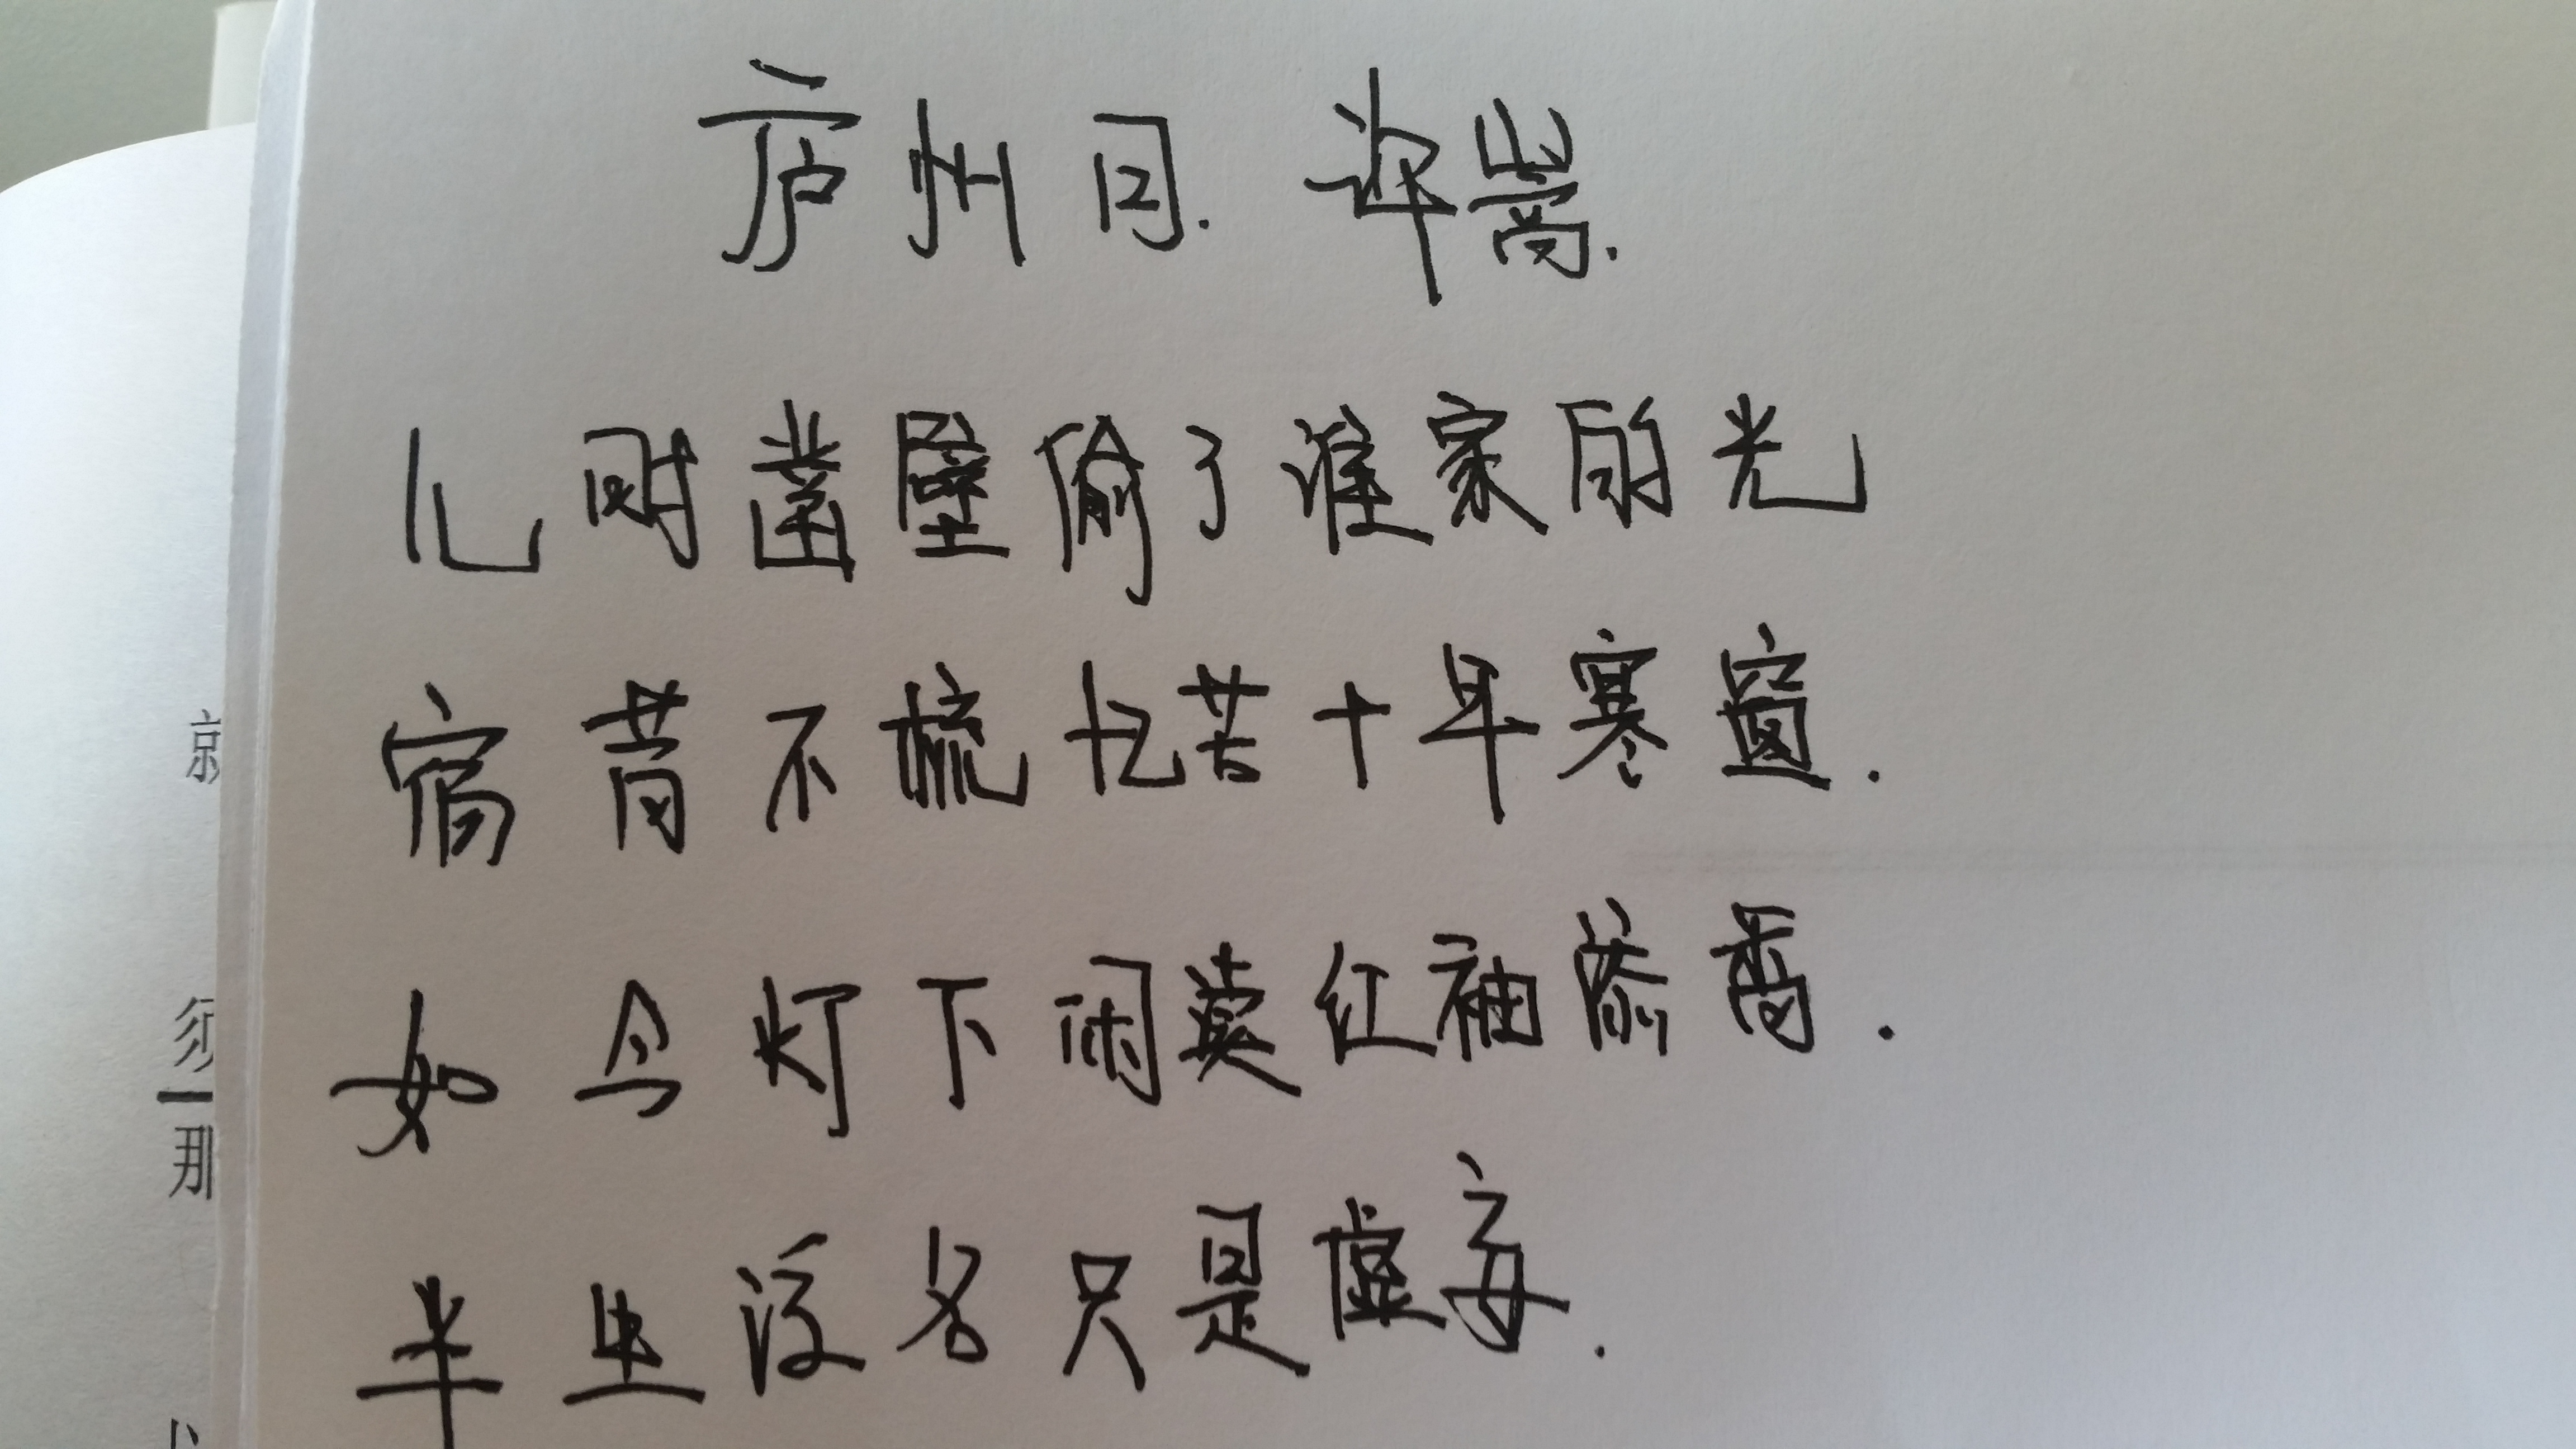 庐州月. 许嵩.
儿时凿壁偷了谁家的光
宿昔不梳忆苦十年寒窗.
如今灯下闲读红袖添香.
半生浮名只是虚妄.
京
须
那